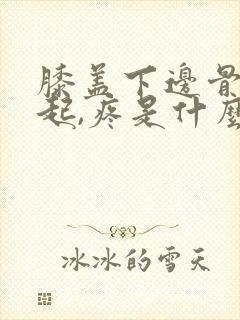 膝盖下邊骨
起,疼是什麼
冰冰的雪天